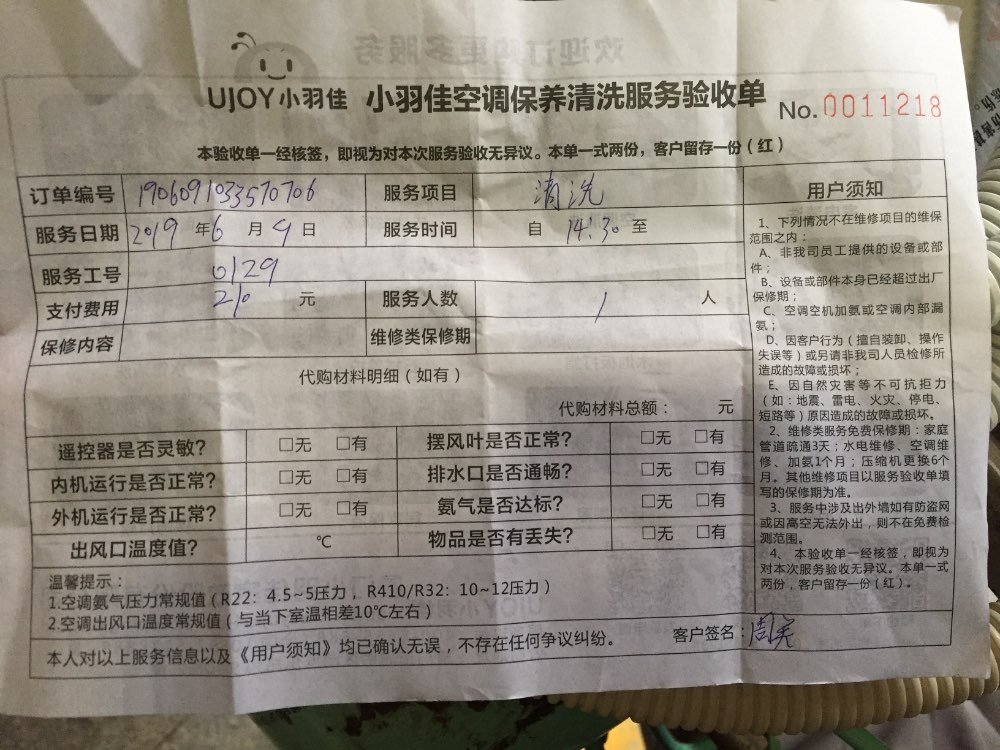 UJOY小羽佳 小羽佳空调保养清洗服务验收单 No.0011218
本验收单一经核签，即视为对本次服务验收无异议。本单一式两份，客户留存一份（红）
订单编号 1906091033570706 服务项目 清洗
服务日期 2019 年 6 月 9 日 服务时间 自 14:30 至
服务工号 0129
支付费用 210 元 服务人数 1 人
保修内容 维修类保修期
代购材料明细（如有）
代购材料总额： 元
遥控器是否灵敏？ □无 □有 摆风叶是否正常？ □无 □有
内机运行是否正常？ □无 □有 排水口是否通畅？ □无 □有
外机运行是否正常？ □无 □有 氨气是否达标？ □无 □有
出风口温度值？ ℃ 物品是否有丢失？ □无 □有
温馨提示：
1.空调氨气压力常规值（R22：4.5~5压力，R410/R32：10~12压力）
2.空调出风口温度常规值（与当下室温相差10℃左右）
本人对以上服务信息以及《用户须知》均已确认无误，不存在任何争议纠纷。 客户签名：
用户须知
1、下列情况不在维修项目的维保
范围之内：
A、非我司员工提供的设备或部
件；
B、设备或部件本身已经超过出厂
保修期；
C、空调空机加氨或空调内部漏
氨；
D、因客户行为（擅自装卸、操作
失误等）或另请非我司人员检修所
造成的故障或损坏；
E、因自然灾害等不可抗拒力
（如：地震、雷电、火灾、停电、
短路等）原因造成的故障或损坏。
2、维修类服务免费保修期：家庭
管道疏通3天；水电维修、空调维
修、加氨1个月；压缩机更换6个
月。其他维修项目以服务验收单填
写的保修期为准。
3、服务中涉及出外墙如有防盗网
或因高空无法外出，则不在免费检
测范围。
4、本验收单一经核签，即视为
对本次服务验收无异议。本单一式
两份，客户留存一份（红）。